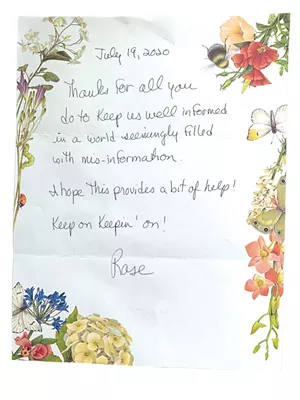 July 19, 2020
Thanks for all you
do to keep us well informed
in a world seemingly filled
with mis-information.
I hope this provides a bit of help!
Keep on Keepin' on!
Rose